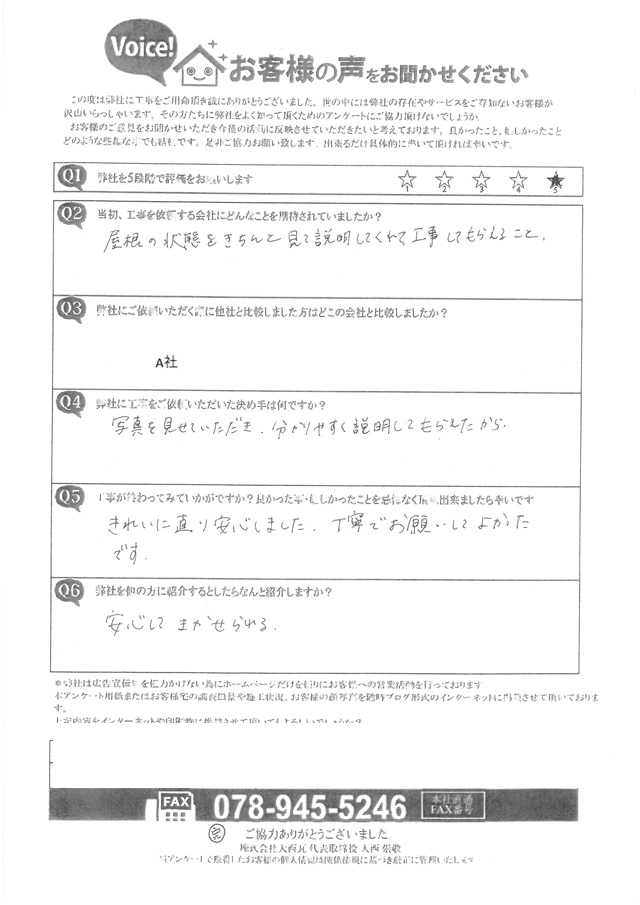 Voice!
お客様の声をお聞かせください
この度は弊社に工事をご用命頂き誠にありがとうございました。世の中には弊社の存在やサービスをご存知ないお客様が
沢山いらっしゃいます。その方たちに弊社をよく知って頂くためのアンケートにご協力頂けないでしょうか。
お客様のご意見をお聞かせいただき今後の活動に反映させていただきたいと考えております。良かったこと、悲しかったこと
どのような些細な事でも結構です。是非ご協力お願い致します。出来るだけ具体的に書いて頂ければ幸いです。
Q1 弊社を5段階で評価をお願いします
1 2 3 4 5
Q2 当初、工事を依頼する会社にどんなことを期待されていましたか?
屋根の状態をきちんと見て説明してくれて工事してもらえること。
Q3 弊社にご依頼いただく際に他社と比較しました方はどこの会社と比較しましたか?
A社
Q4 弊社に工事をご依頼いただいた決め手は何ですか?
写真を見せていただき、分かりやすく説明してもらえたから。
Q5 工事が終わってみていかがですか?良かった事・悲しかったことを忌憚なく頂戴出来ましたら幸いです
きれいに直り安心しました。丁寧でお願いしてよかった
です。
Q6 弊社を他の方に紹介するとしたらなんと紹介しますか?
安心して まかせられる。
※弊社は広告宣伝費を極力かけない為にホームページだけを頼りにお客様への営業活動を行っております
本アンケート用紙またはお客様宅の調査風景や施工状況、お客様の顔写真を随時ブログ形式のインターネットに掲載させて頂いております。
FAX 078-945-5246 本社直通
FAX番号
ご協力ありがとうございました
株式会社大西瓦 代表取締役 大西 崇敬
当アンケートで取得したお客様の個人情報は関係法規に基づき厳正に管理いたします